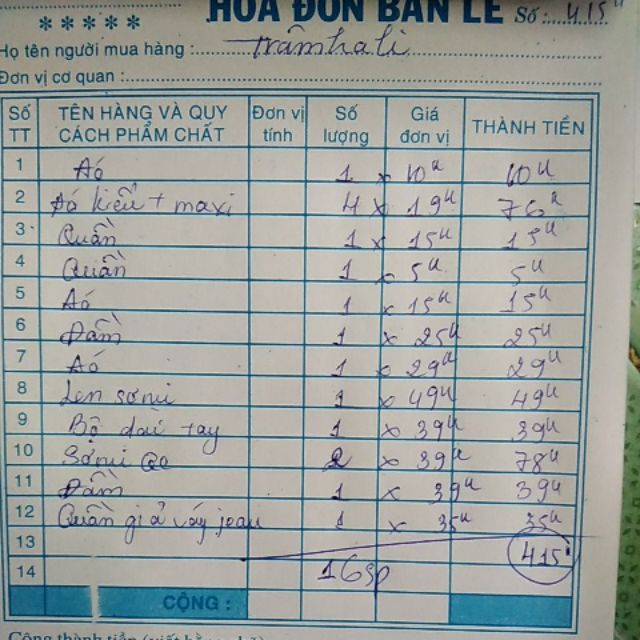 HÓA ĐƠN BÁN LẺ Số : 415ᵏ
★★★★★
Họ tên người mua hàng : trâmhati
Đơn vị cơ quan :
Số TT TÊN HÀNG VÀ QUY CÁCH PHẨM CHẤT Đơn vị tính Số lượng Giá đơn vị THÀNH TIỀN
1 Áo 1 x 10ᵏ 10ᵏ
2 Áo kiểu + maxi 4 x 19ᵏ 76ᵏ
3 Quần 1 x 15ᵏ 15ᵏ
4 Quần 1 x 5ᵏ 5ᵏ
5 Áo 1 x 15ᵏ 15ᵏ
6 Đầm 1 x 25ᵏ 25ᵏ
7 Áo 1 x 29ᵏ 29ᵏ
8 Len sơmi 1 x 49ᵏ 49ᵏ
9 Bộ dài tay 1 x 39ᵏ 39ᵏ
10 Sơmi 2 x 39ᵏ 78ᵏ
11 Đầm 1 x 39ᵏ 39ᵏ
12 Quần giả váy jean 1 x 35ᵏ 35ᵏ
13 415ᵏ
14 16sp
CỘNG :
Cộng thành tiền (viết bằng chữ)